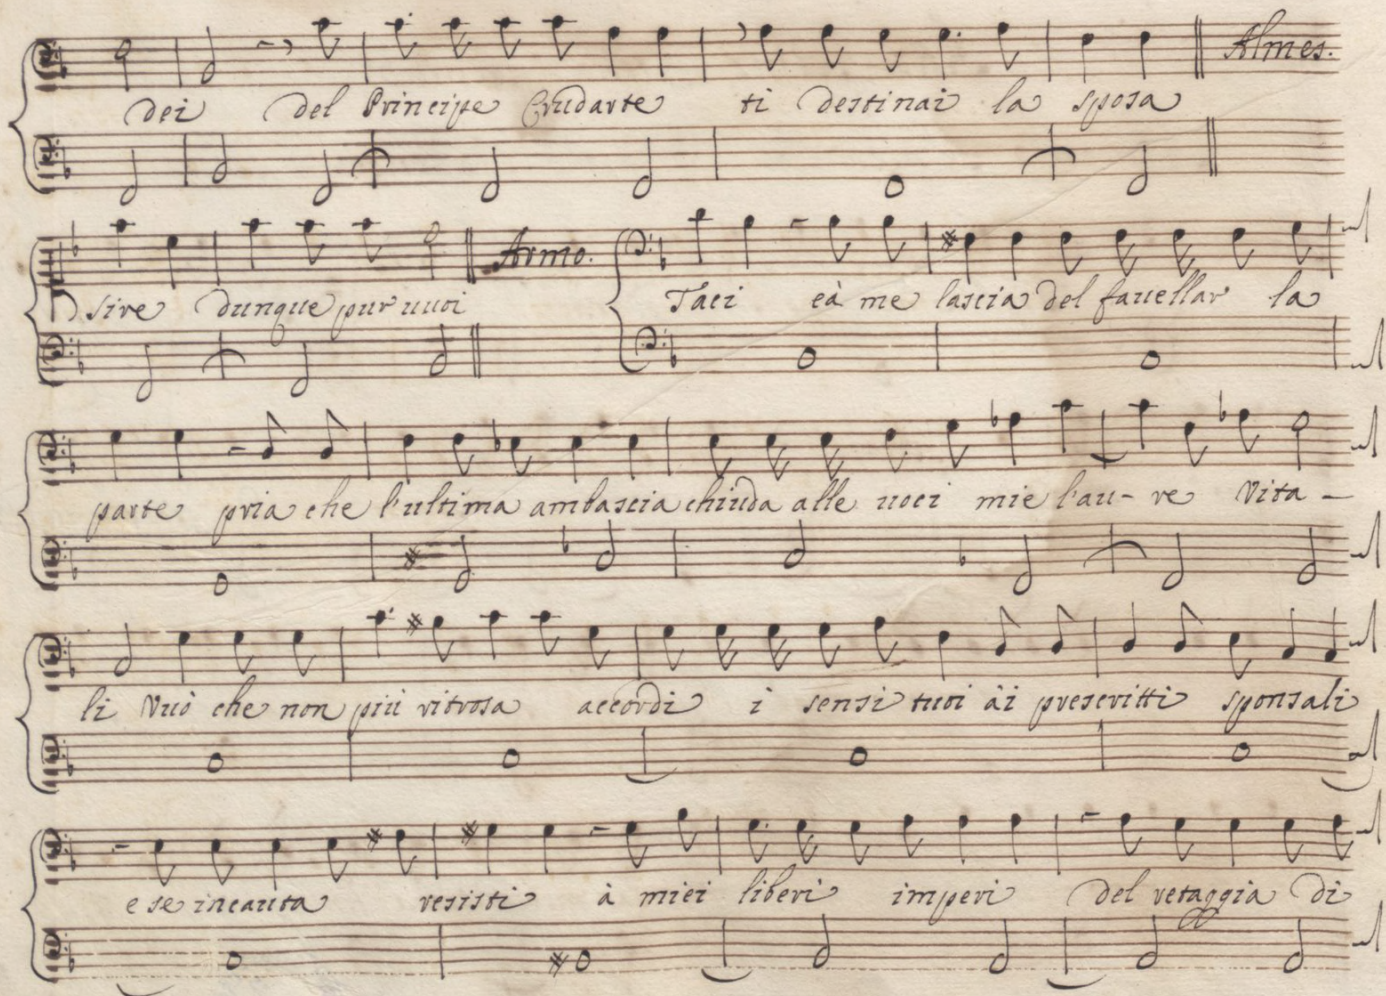 dei del Principe Crudarte ti destinai la sposa Almes.
sire dunque pur uuoi Armo. Taci eà me lascia del fauellar la
parte pria che l'ultima ambascia chiuda alle uoci mie l'au- re Vita-
li Vuò che non più ritrosa accordi i sensi tuoi ài prescritti sponsali
e se incauta resisti à miei liberi imperi del retaggia di